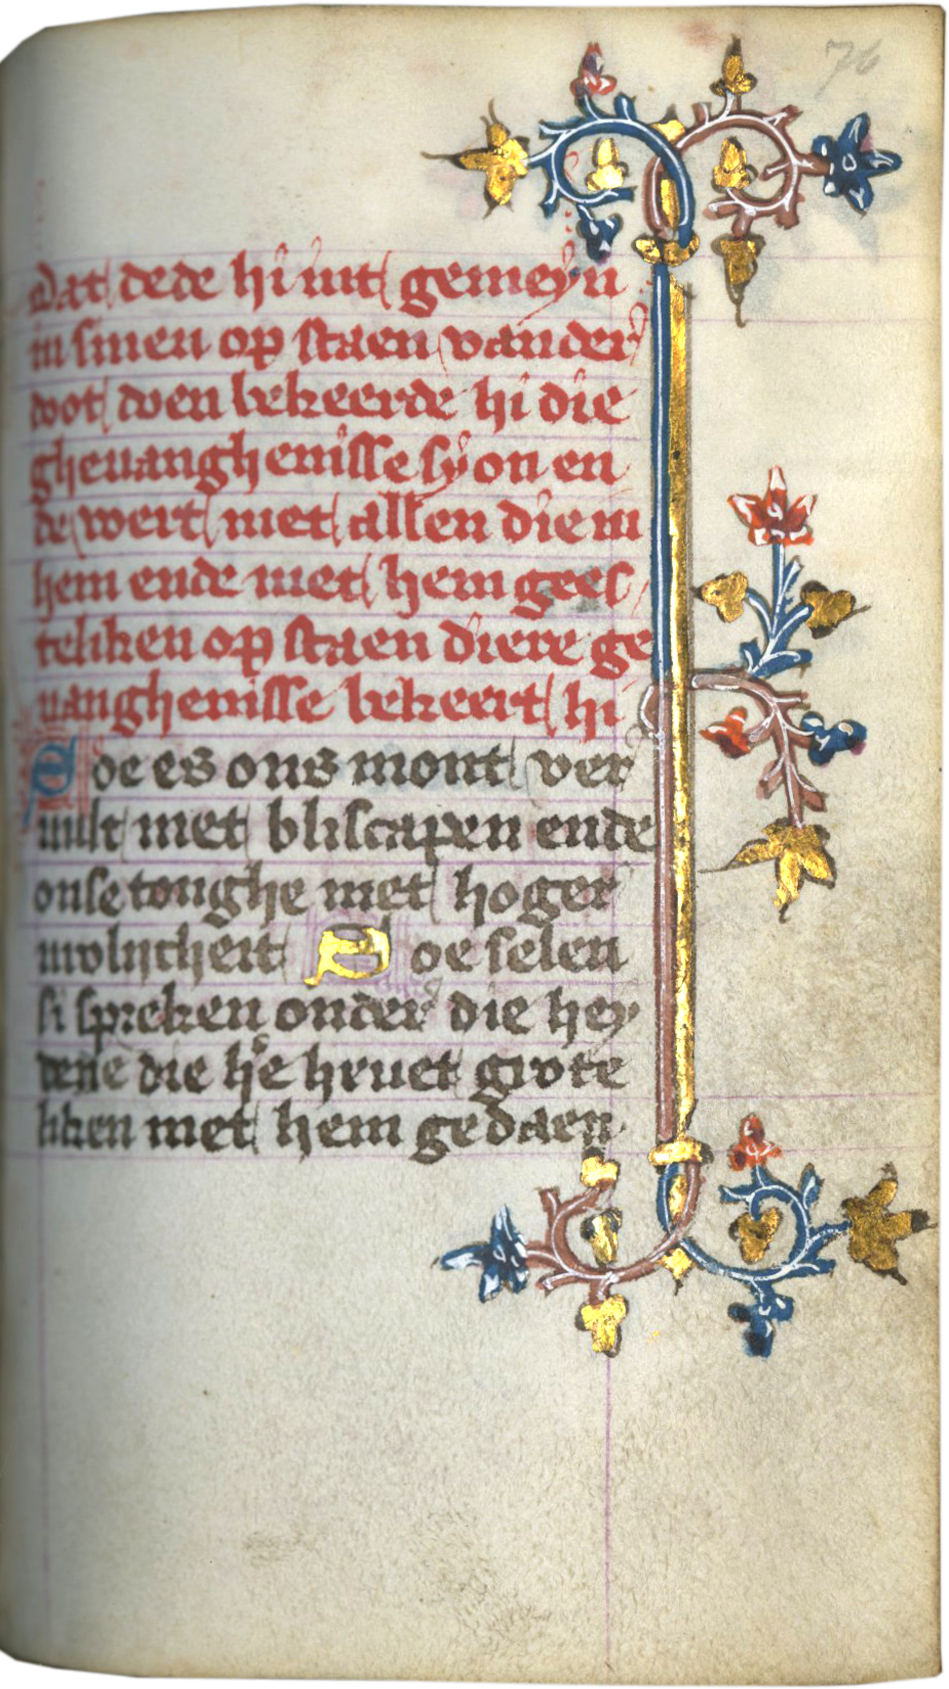 76
Dat dede hi int gemeyn
in sinen op staen vander
doot doen bekeerde hi die
gheuanghenisse syon en
de wert met allen die in
hem ende met hem gees
teliken op staen diere ge
uanghenisse bekeert hi
Doe es ons mont ver
uult met bliscapen ende
onse tonghe met hoger
urolijcheit Doe selen
si spreken onder die hey
dene die he hruet grote
liken met hem gedaen